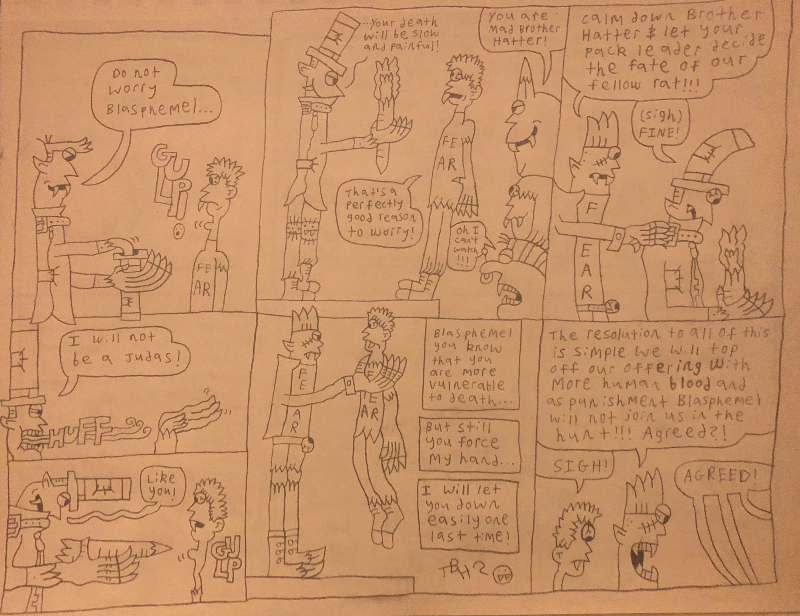 Do not
worry
Blasphemel...
GULP
FE
AR
...Your death
will be slow
and painful!
That's a
perfectly
good reason
to worry!
FE
AR
You are
Mad Brother
Hatter!
oh I
can't
watch
!!!
Calm down Brother
Hatter & let your
pack leader decide
the fate of our
fellow rat!!!
(sigh)
FINE!
F
E
A
R
I will not
be a Judas!
HUFF
Like
You!
GULP
F
E
A
R
EAR
Blasphemel
you know
that you
are more
vulnerable
to death...
But still
you force
my hand...
I will let
you down
easily one
last time!
The resolution to all of this
is simple we will top
off our offering with
More human blood and
as punishment Blasphemel
will not join us in the
hunt!!! Agreed?!
SIGH!
AGREED!